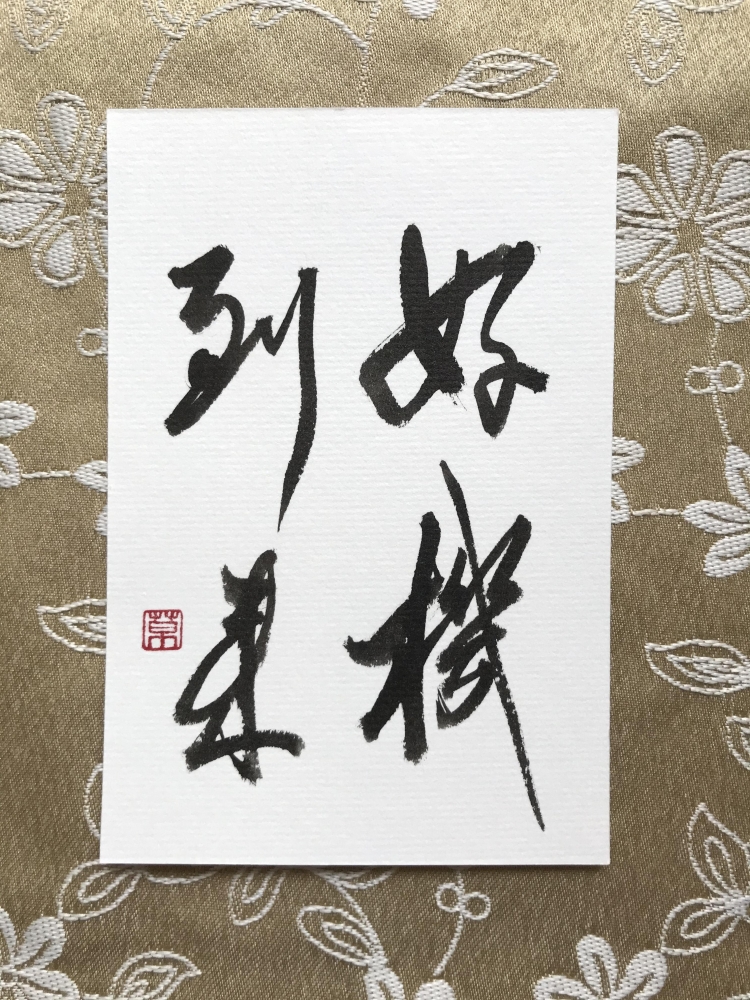 好機
到来